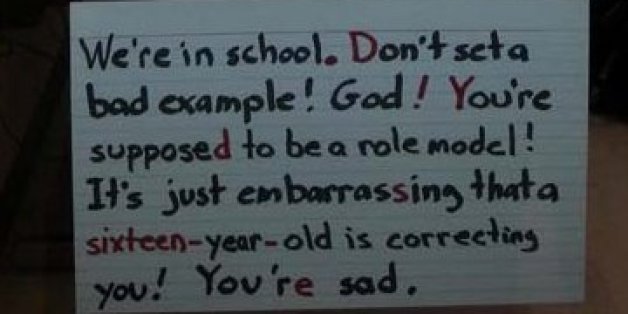 We're in school. Don't set a
bad example! God! You're
supposed to be a role model!
It's just embarrassing that a
sixteen-year-old is correcting
you! You're sad.